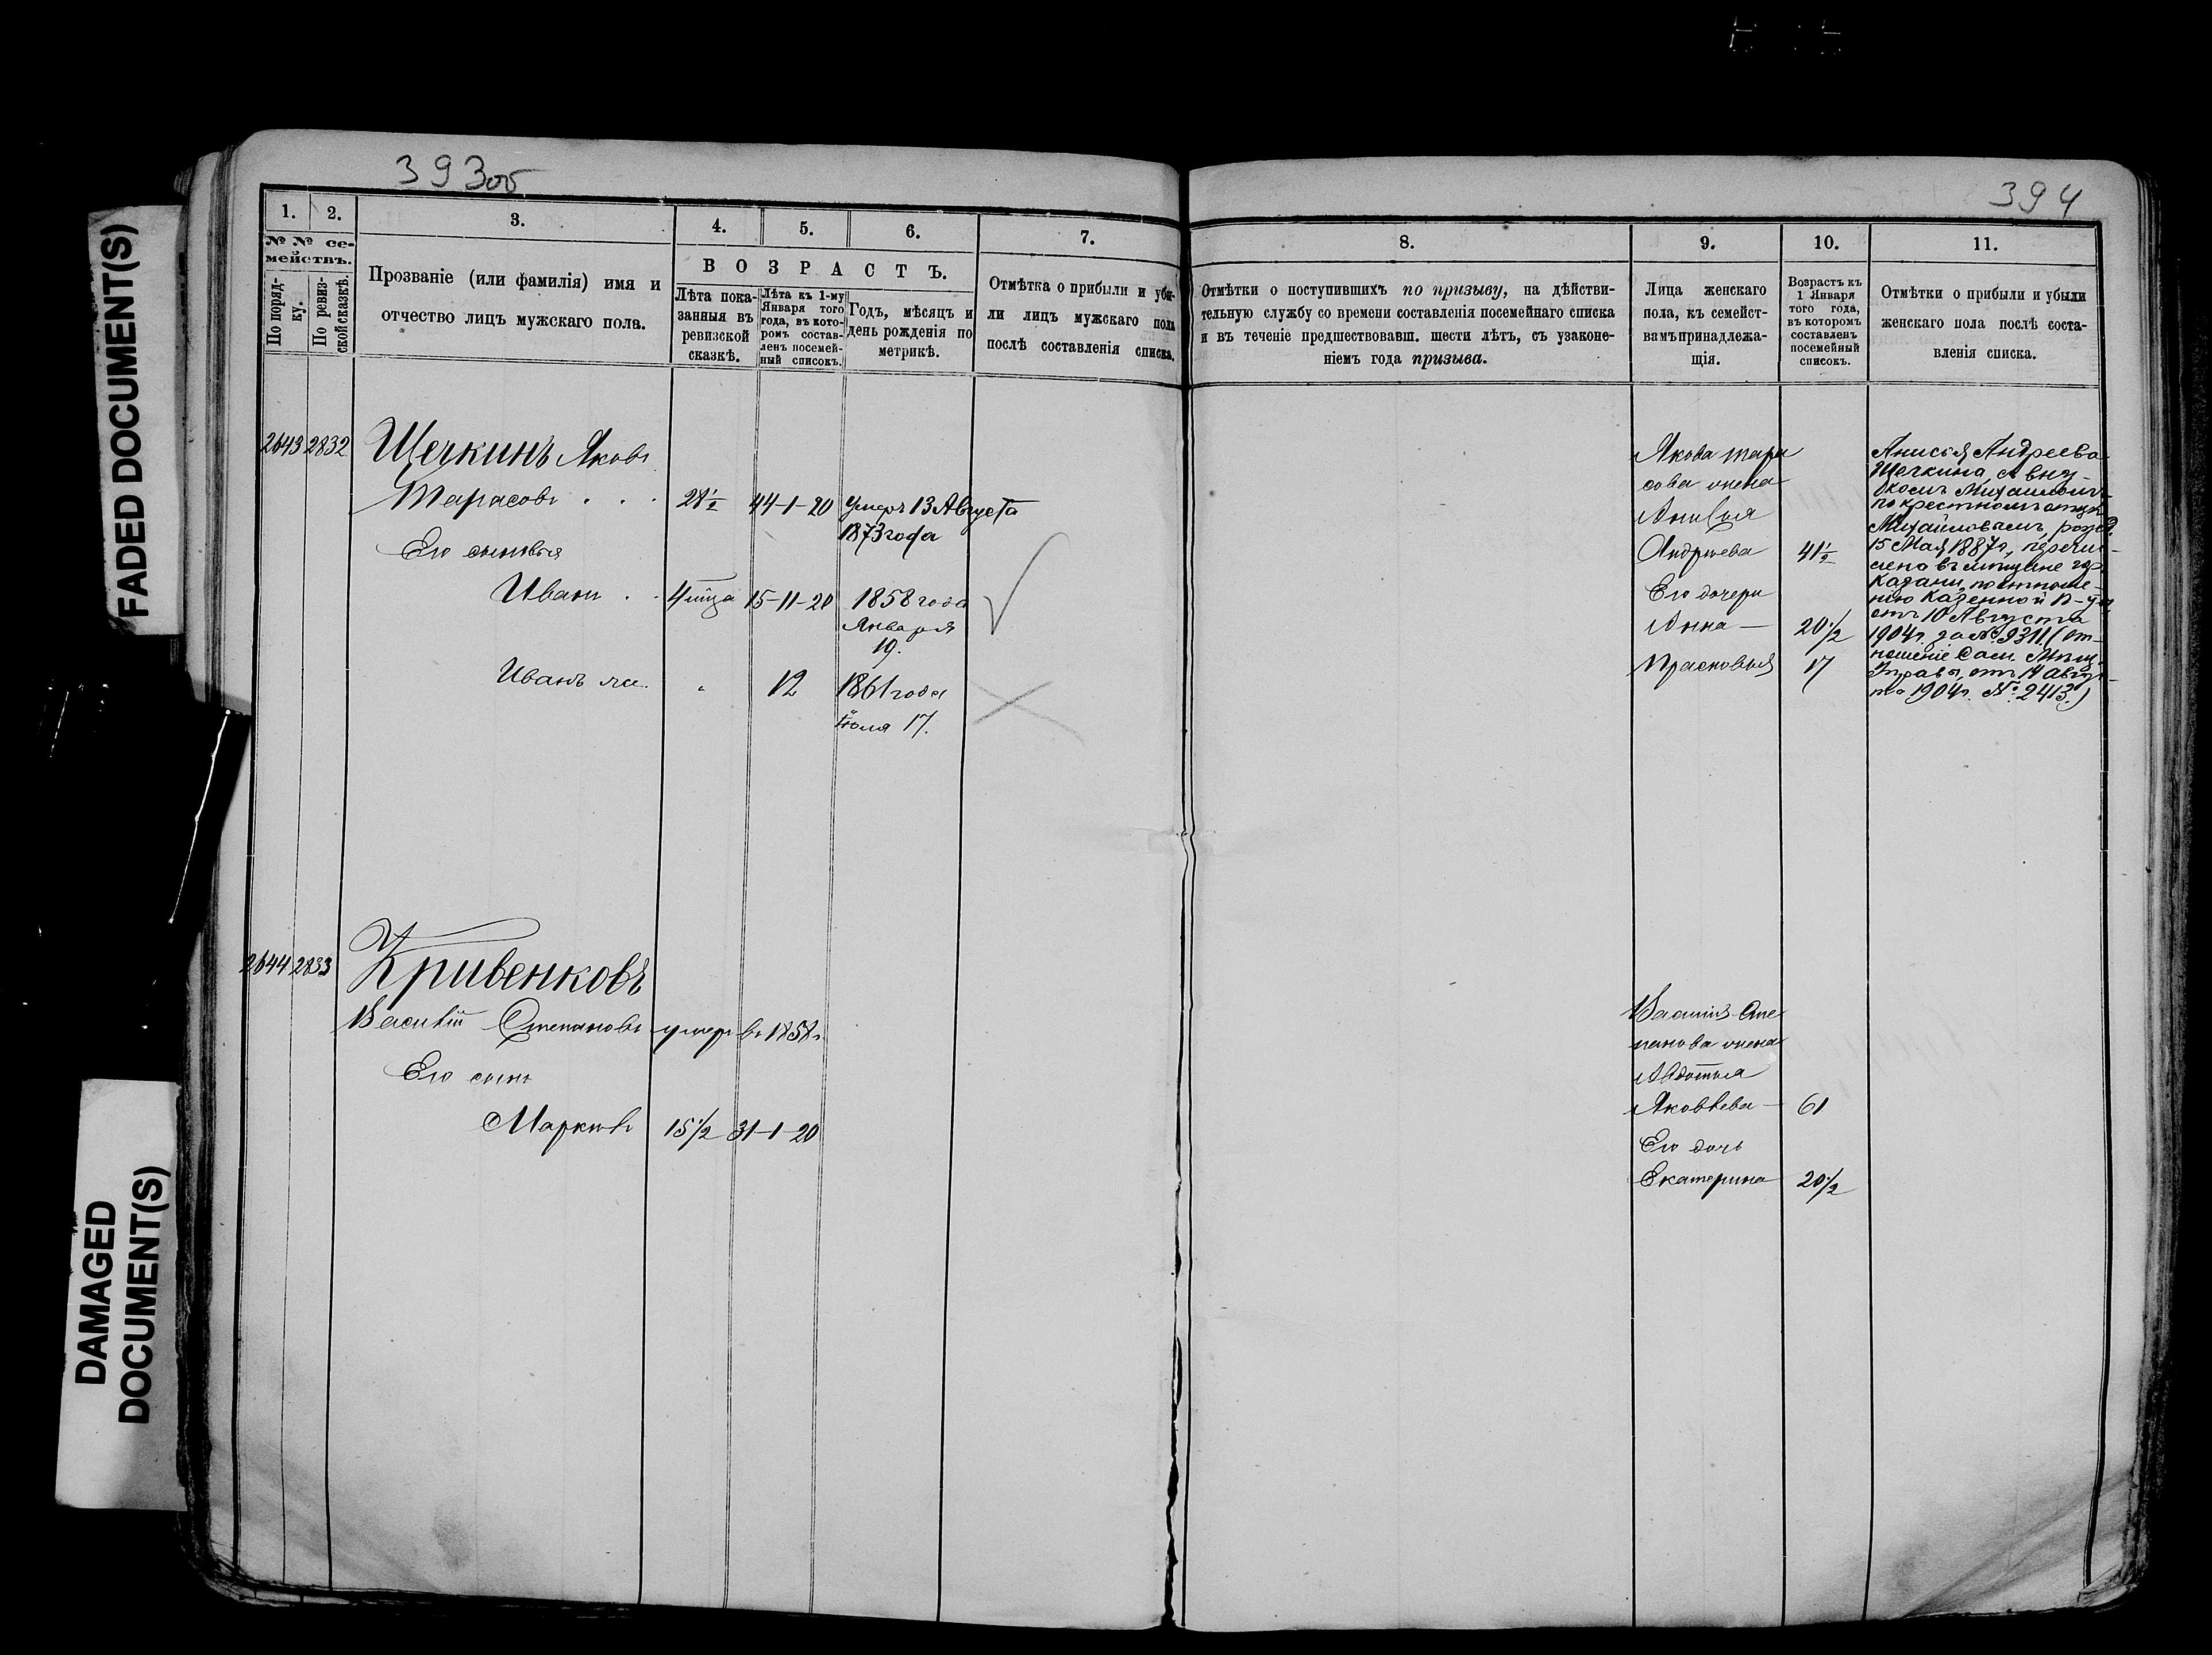 FADED DOCUMENT(S)
DAMAGED
DOCUMENT(S)
393об
1.
2.
3.
4.
5.
6.
7.
№ № се-
мействъ.
По поряд-
ку.
По ревиз-
ской сказкѣ.
Прозваніе (или фамилія) имя и
отчество лицъ мужскаго пола.
ВОЗРАСТЪ.
Лѣта пока-
занныя въ
ревизской
сказкѣ.
Лѣта къ 1-му
Января того
года, въ кото-
ромъ состав-
ленъ посемей-
ный списокъ.
Годъ, мѣсяцъ и
день рожденія по
метрикѣ.
Отмѣтка о прибыли и убы-
ли лицъ мужскаго пола
послѣ составленія списка.
2643 2832 Щечкинъ Яковъ
Тарасовъ . . . 28½ 44-1-20 умеръ 13 Августа
1873 года
Его сыновья
Иванъ . . 4 мца 15-11-20 1858 года
Января
19.
Иванъ мл. „ 12 1861 года
Іюля 17.
2644 2833 Кривенковъ
Василій Степановъ умеръ въ 1858 г.
Его сынъ
Маркелъ 15½ 31-1-20
394
8.
9.
10.
11.
Отмѣтки о поступившихъ по призыву, на дѣйстви-
тельную службу со времени составленія посемейнаго списка
и въ теченіе предшествовавш. шести лѣтъ, съ узаконе-
ніемъ года призыва.
Лица женскаго
пола, къ семейст-
вамъ принадлежа-
щія.
Возрастъ къ
1 Января
того года,
въ которомъ
составленъ
посемейный
списокъ.
Отмѣтки о прибыли и убыли
женскаго пола послѣ соста-
вленія списка.
Якова Тара
сова жена
Анисья
Андреева 41½
Его дочери
Анна — 20½
Прасковья 17
Анисья Андреева
Щечкина, съ вну-
комъ Михаиломъ
по крестному отцу
Михайловымъ, рожд.
15 Мая 1887 г., перечис-
лена въ мѣщане гор.
Казани, по отноше-
нію Казенной П-ты
отъ 10 Августа
1904 г. за № 9311 (от-
ношеніе Сам. Мѣщ.
Управы, отъ 14 Авгус-
та 1904 г. № 2413.)
Василія Сте
панова жена
Авдотья
Яковлева — 61
Его дочь
Екатерина 20½